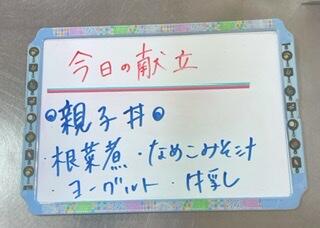 今日の献立
●親子丼●
・根菜煮・なめこみそ汁
・ヨーグルト・牛乳